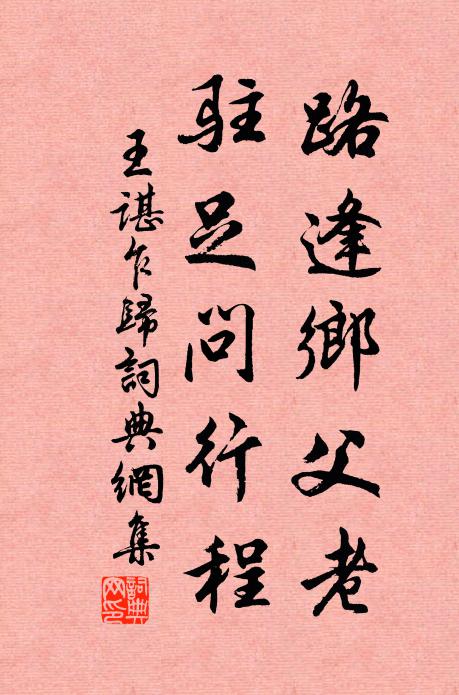 路逢鄉父老
駐足問行程
王諶乍歸詞典網集
詞典網印